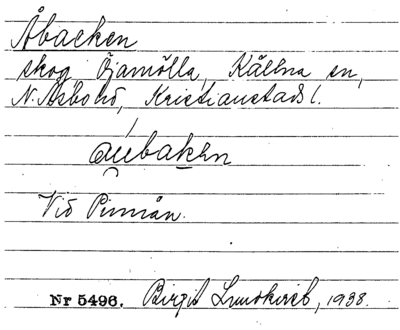 Åbacken
skog Öjamölla, Källna sn,
N. Åsbo hd, Kristianstads l.
áu̯bakɛn
Vid Pinnån.
Nr 5496. Birgit Lundkvist, 1938.